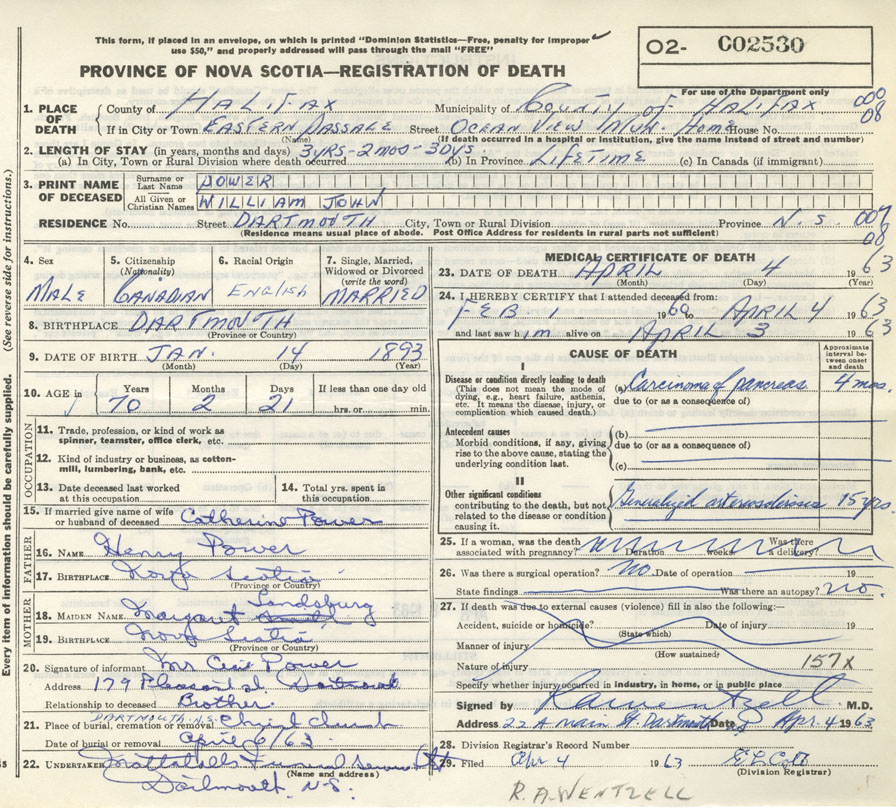 This form, if placed in an envelope, on which is printed "Dominion Statistics—Free, penalty for improper
use $50," and properly addressed will pass through the mail "FREE"
PROVINCE OF NOVA SCOTIA—REGISTRATION OF DEATH
O2- C02530
For use of the Department only
1. PLACE OF DEATH { County of HALIFAX Municipality of County of HALIFAX 000
If in City or Town EASTERN PASSAGE Street OCEAN VIEW MUN. HOME House No. 08
(Name) (If death occurred in a hospital or institution, give the name instead of street and number)
2. LENGTH OF STAY (in years, months and days) 3YRS-2MOS-3DYS.
(a) In City, Town or Rural Division where death occurred (b) In Province LIFETIME (c) In Canada (if immigrant)
3. PRINT NAME OF DECEASED
Surname or Last Name POWER
All Given or Christian Names WILLIAM JOHN
RESIDENCE No. Street DARTMOUTH City, Town or Rural Division Province N.S. 004
(Residence means usual place of abode. Post Office Address for residents in rural parts not sufficient) 08
4. Sex MALE
5. Citizenship (Nationality) CANADIAN
6. Racial Origin ENGLISH
7. Single, Married, Widowed or Divorced (write the word) MARRIED
8. BIRTHPLACE DARTMOUTH
(Province or Country)
9. DATE OF BIRTH JAN. 14 1893
(Month) (Day) (Year)
10. AGE in Years 70 Months 2 Days 21 If less than one day old hrs. or min.
OCCUPATION
11. Trade, profession, or kind of work as spinner, teamster, office clerk, etc.
12. Kind of industry or business, as cotton-mill, lumbering, bank, etc.
13. Date deceased last worked at this occupation
14. Total yrs. spent in this occupation
15. If married give name of wife or husband of deceased Catherine Power
FATHER
16. NAME Henry Power
17. BIRTHPLACE Nova Scotia
(Province or Country)
MOTHER
18. MAIDEN NAME Margaret Sandsburg
19. BIRTHPLACE Nova Scotia
(Province or Country)
20. Signature of informant Mrs Cecil Power
Address 179 Pleasant St Dartmouth
Relationship to deceased Brother
21. Place of burial, cremation or removal DARTMOUTH, N.S. Christ Church
Date of burial or removal April 6/63
22. UNDERTAKER Mattatalls Funeral Service Ltd
(Name and address)
Dartmouth, N.S.
MEDICAL CERTIFICATE OF DEATH
23. DATE OF DEATH APRIL 4 1963
(Month) (Day) (Year)
24. I HEREBY CERTIFY that I attended deceased from:
FEB 1 1960 to APRIL 4 1963
and last saw him alive on APRIL 3 1963
CAUSE OF DEATH
Approximate interval between onset and death
I
Disease or condition directly leading to death (a) Carcinoma of pancreas 4 mos.
(This does not mean the mode of dying, e.g., heart failure, asthenia, etc. It means the disease, injury, or complication which caused death.)
due to (or as a consequence of)
Antecedent causes (b)
Morbid conditions, if any, giving rise to the above cause, stating the underlying condition last.
due to (or as a consequence of)
(c)
II
Other significant conditions contributing to the death, but not related to the disease or condition causing it.
Generalized arteriosclerosis 15 yrs.
25. If a woman, was the death associated with pregnancy? Duration weeks Was there a delivery?
26. Was there a surgical operation? no Date of operation 19
State findings Was there an autopsy? no.
27. If death was due to external causes (violence) fill in also the following:—
Accident, suicide or homicide? Date of injury 19
(State which)
Manner of injury
(How sustained)
Nature of injury 157X
Specify whether injury occurred in industry, in home, or in public place
Signed by RA Wentzell M.D.
Address 22 A main St. Dartmouth Date Apr. 4 1963
28. Division Registrar's Record Number
29. Filed Apr 4 1963
(Division Registrar)
R.A. WENTZELL
Every item of information should be carefully supplied. (See reverse side for instructions.)